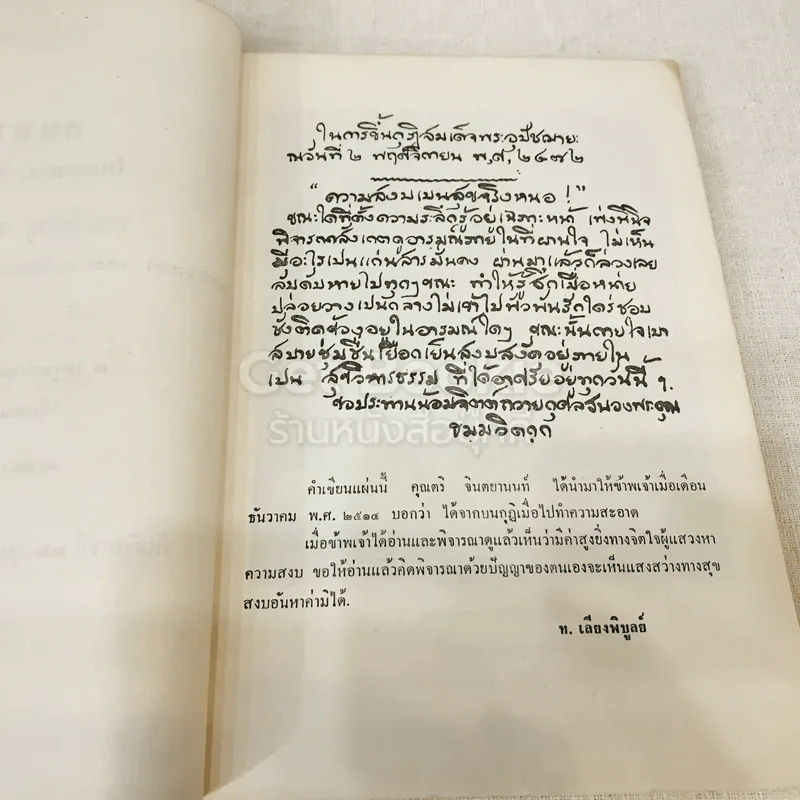 ในการขึ้นกุฏิสมเด็จพระอุปัชฌายะ
ณวันที่ ๒ พฤศจิกายน พ,ศ, ๒๔๗๒
"ความสงบเปนสุขจริงหนอ !"
ขณะใดที่ตั้งความระลึกรู้อยู่เฉพาะหน้า เพ่งพินิจ
พิจารณาสังเกตดูอารมณ์ภายในที่ผ่านใจ ไม่เห็น
มีอะไรเป็นแก่นสารมั่นคง ผ่านมาแล้วก็ล่วงเลย
ลับดับหายไปทุกๆขณะ ทำให้รู้สึกเบื่อหน่าย
ปล่อยวางเปนกลางไม่เข้าไปพัวพันรักใคร่ชอบ
ชังติดข้องอยู่ในอารมณ์ใดๆ ขณะนั้นกายใจเบา
สบายชุ่มชื่นเยือกเย็นสงบสงัดอยู่ภายใน
เปน สุขวิหารธรรม ที่ได้อาศรัยอยู่ทุกวันนี้ ๆ
ขอประทานน้อมจิตต์ถวายกุศลสนองพระคุณ
ชมฺมวิตกฺก
Ge
ร้านหนังสือ
คำเขียนแผ่นนี้ คุณตริ จินตยานนท์ ได้นำมาให้ข้าพเจ้าเมื่อเดือน
ธันวาคม พ.ศ. ๒๕๑๔ บอกว่า ได้จากบนกุฏิเมื่อไปทำความสะอาด
เมื่อข้าพเจ้าได้อ่านและพิจารณาดูแล้วเห็นว่ามีค่าสูงยิ่งทางจิตใจผู้แสวงหา
ความสงบ ขอให้อ่านแล้วคิดพิจารณาด้วยปัญญาของตนเองจะเห็นแสงสว่างทางสุข
สงบอันหาค่ามิได้.
ท. เลียงพิบูลย์